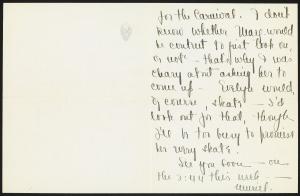 for the Carnival. I don't
know whether Marg would
be content to just look on,
or not - that's why I was
chary about asking her to
come up - Evelyn would,
of course, skate - I'd
look out for that, though
I'd be too busy to promise
her every skate.
See you soon - on
the 3:44 this week -
Muriel.